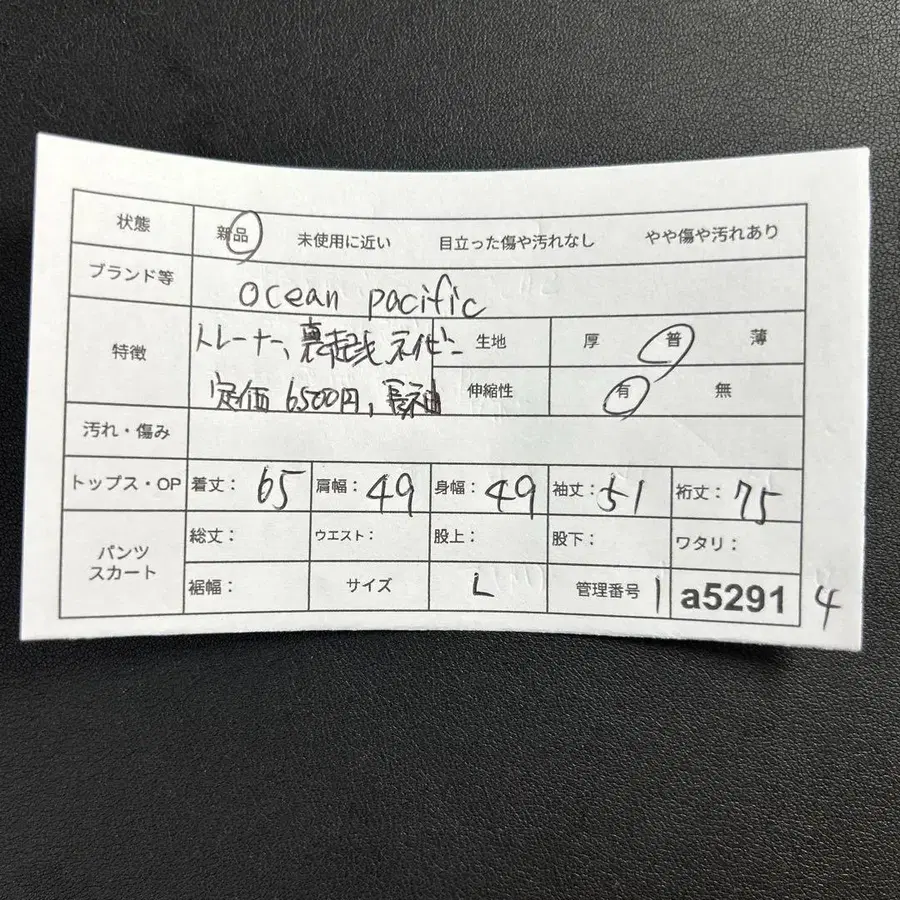 状態 新品 未使用に近い 目立った傷や汚れなし やや傷や汚れあり
ブランド等 ocean pacific
特徴 トレーナー、裏起毛 ネイビー 生地 厚 普 薄
定価 6500円, 長袖 伸縮性 有 無
汚れ・傷み
トップス・OP 着丈: 65 肩幅: 49 身幅: 49 袖丈: 51 裄丈: 75
パンツ 総丈: ウエスト: 股上: 股下: ワタリ:
スカート 裾幅: サイズ L 管理番号 1 a5291 4